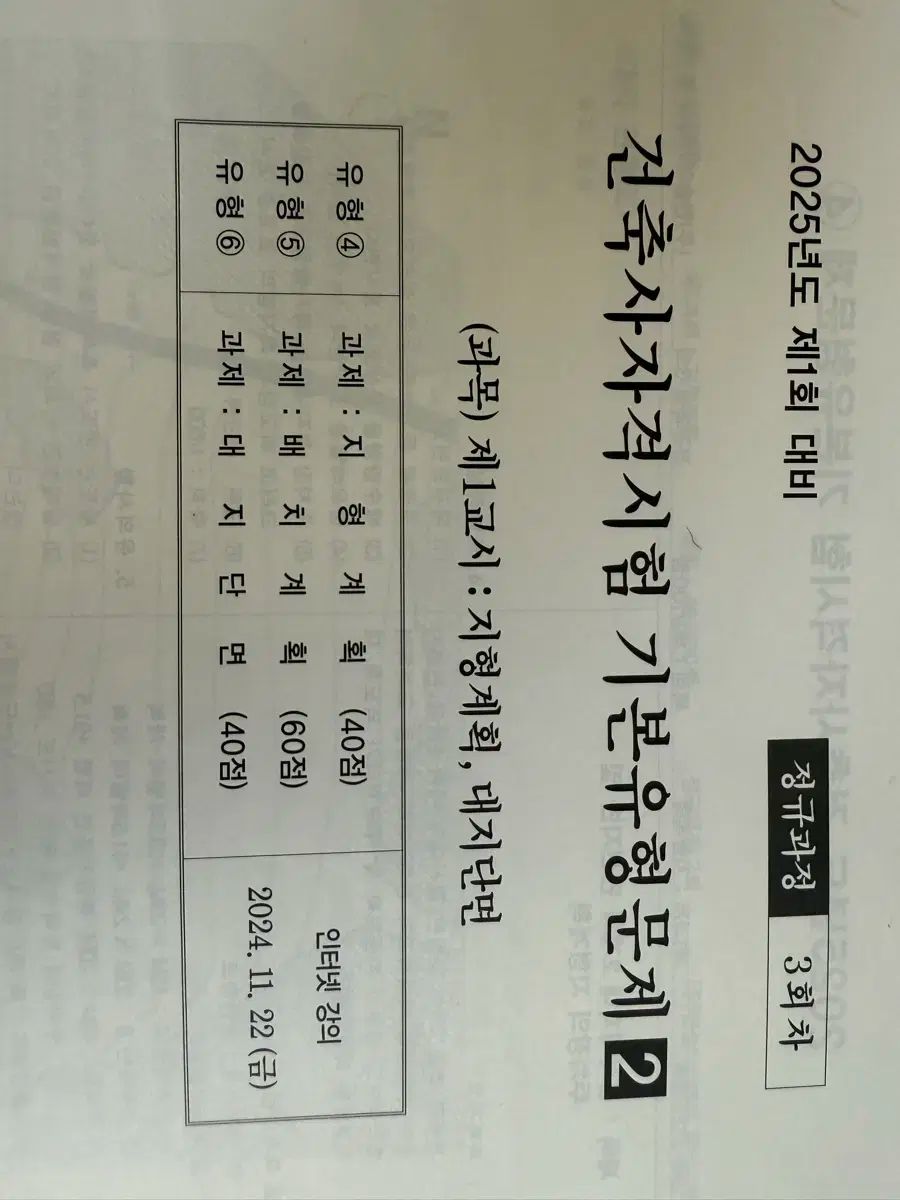 2025년도 제1회 대비
정규과정 3회차
건축사자격시험 기본유형문제 2
(과목) 제1교시 : 지형계획, 대지단면
유형 ④ 과제 : 지형계획 (40점)
유형 ⑤ 과제 : 배치계획 (60점)
유형 ⑥ 과제 : 대지단면 (40점)
인터넷 강의
2024. 11. 22 (금)